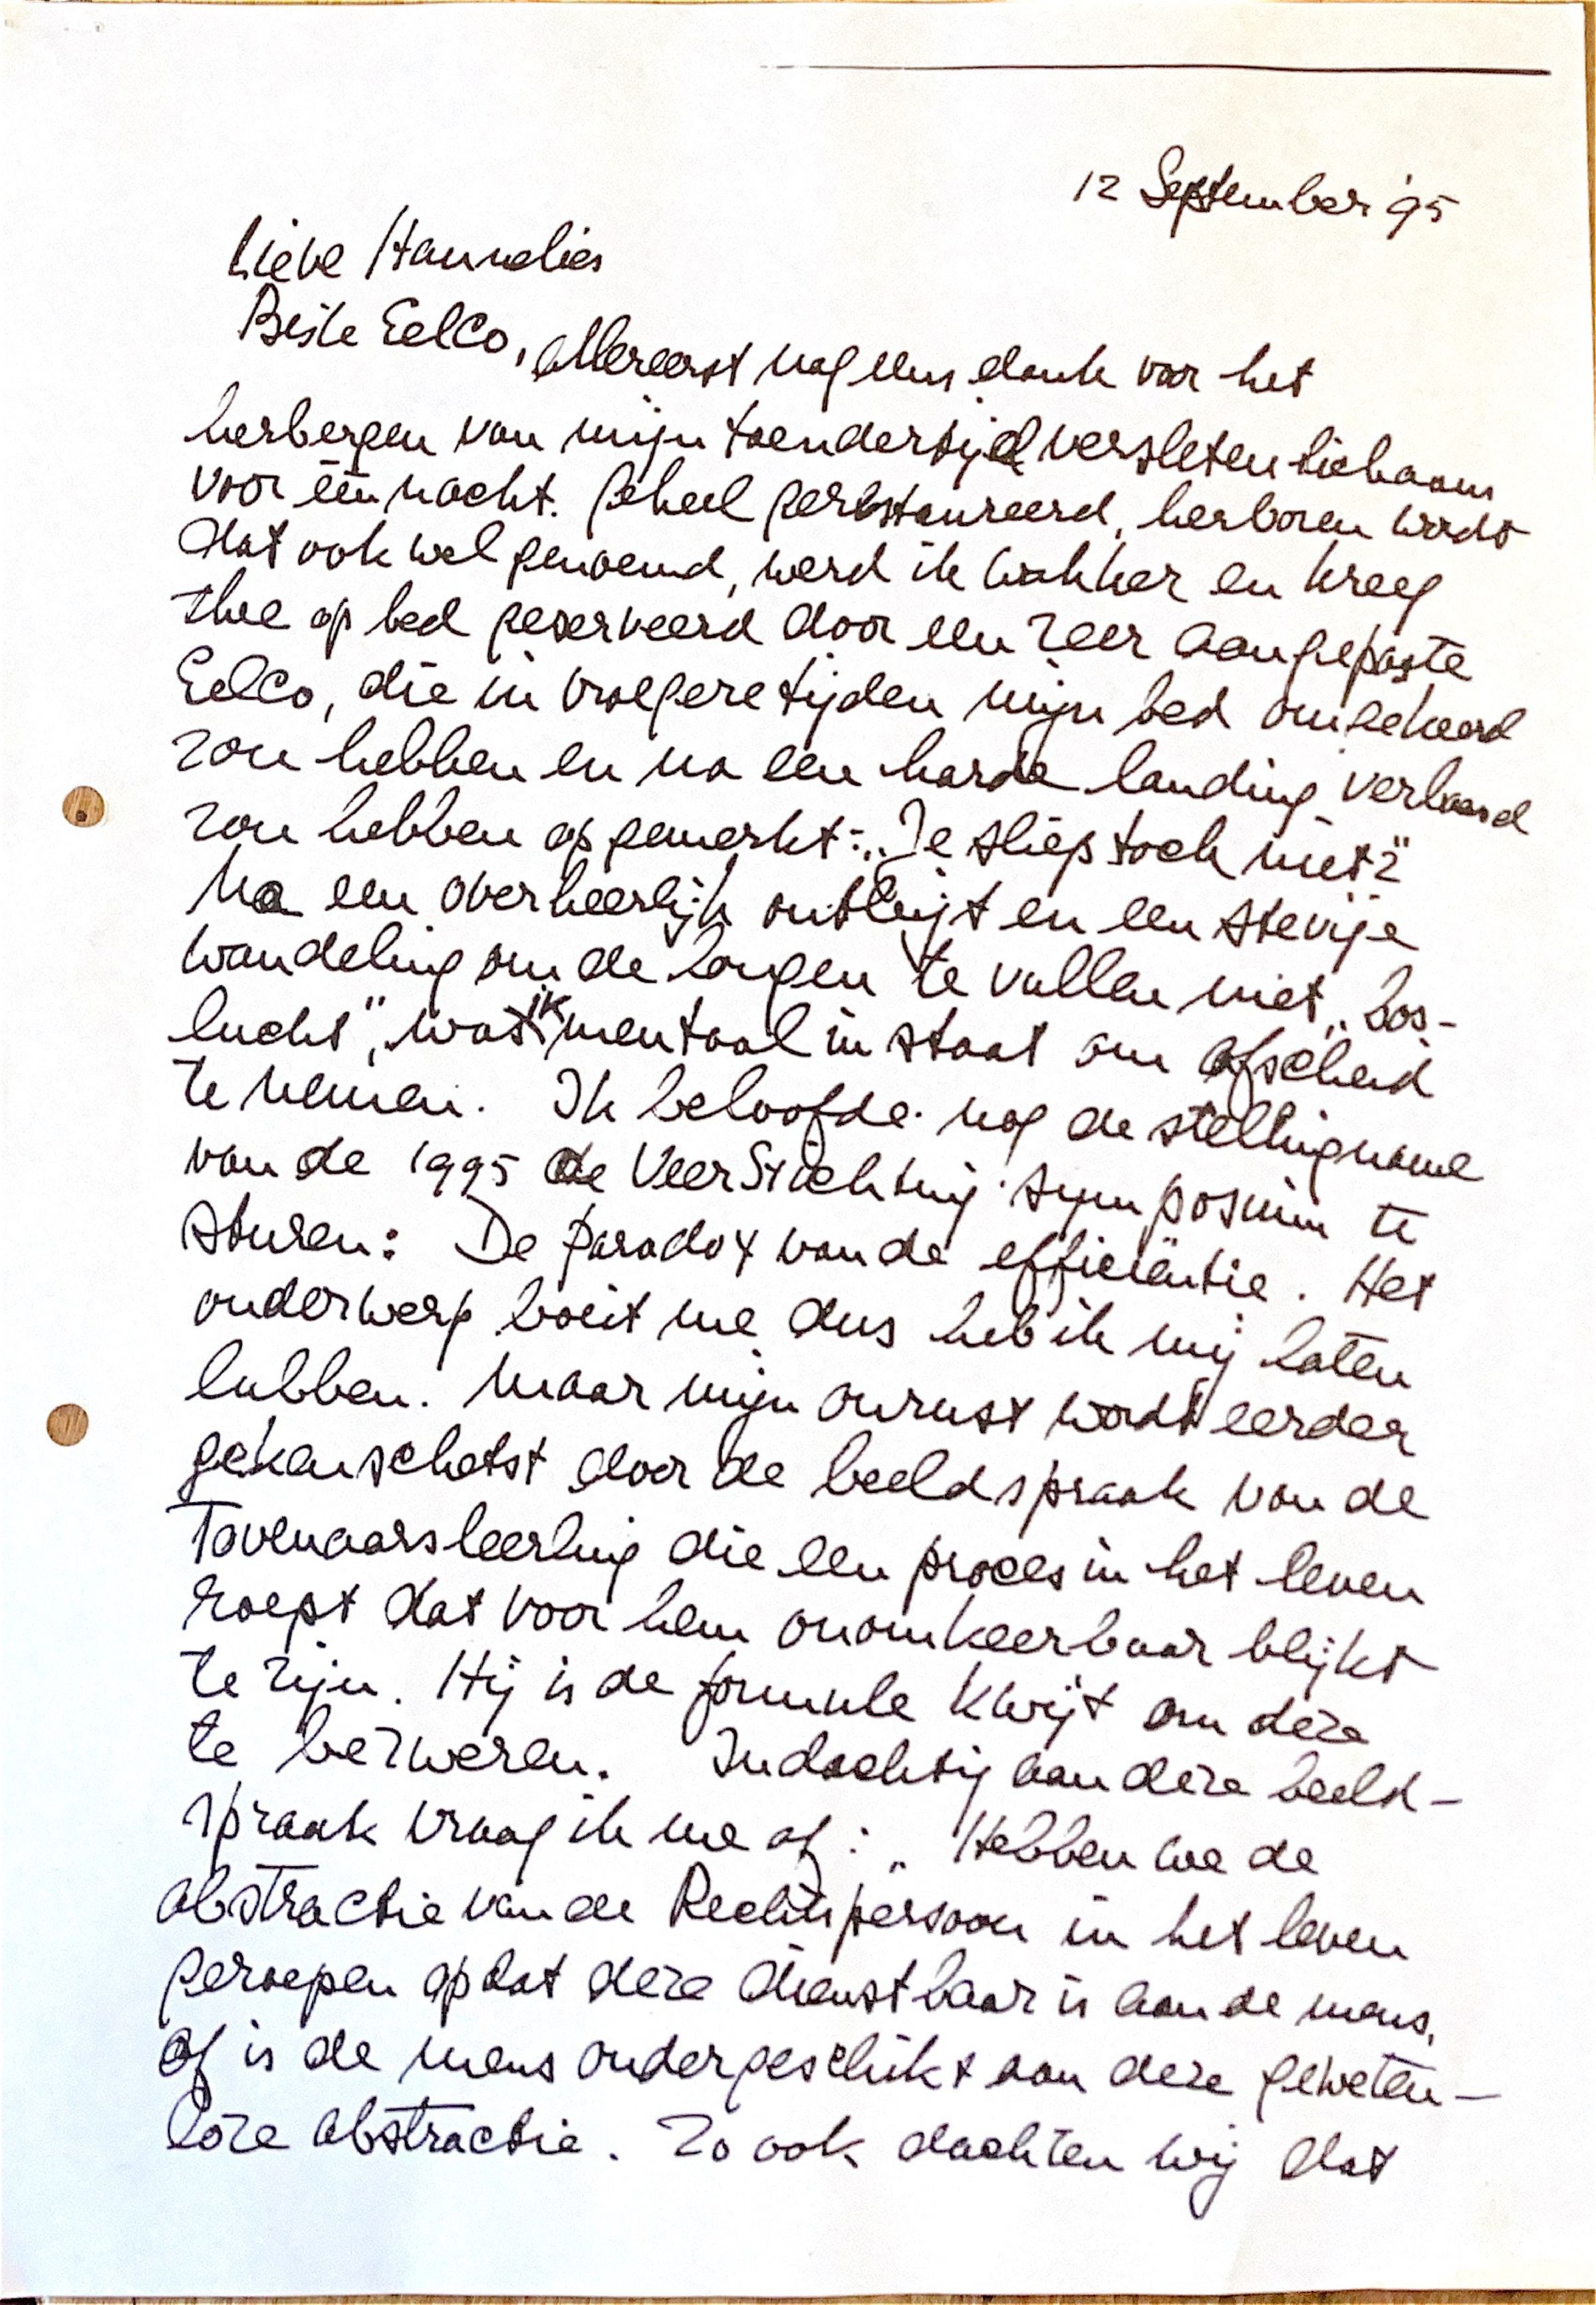 12 September '95
Lieve Hannelies
Beste Eelco, allereerst nog eens dank voor het
herbergen van mijn toendertijd versleten lichaam
voor één nacht. Geheel gerestaureerd, herboren wordt
dat ook wel genoemd, werd ik wakker en kreeg
thee op bed geserveerd door een zeer aangepaste
Eelco, die in vroegere tijden mijn bed omgekeerd
zou hebben en na een harde landing verbaasd
zou hebben opgemerkt: „Je sliep toch niet?"
Na een overheerlijk ontbijt en een stevige
wandeling om de longen te vullen met „bos-
lucht", was ik mentaal in staat om afscheid
te nemen. Ik beloofde nog de stellingname
van de 1995 de VeerStichting symposium te
sturen: De Paradox van de efficiëntie. Het
onderwerp boeit me dus heb ik mij laten
lubben. Maar mijn onrust wordt eerder
gekenschetst door de beeldspraak van de
Tovenaarsleerling die een proces in het leven
roept dat voor hem onomkeerbaar blijkt
te zijn. Hij is de formule kwijt om deze
te bezweren. Indachtig aan deze beeld-
spraak vraag ik me af: „Hebben we de
abstractie van de Rechtspersoon in het leven
geroepen opdat deze dienstbaar is aan de mens,
of is de mens ondergeschikt aan deze geweten-
loze abstractie. Zo ook dachten wij dat